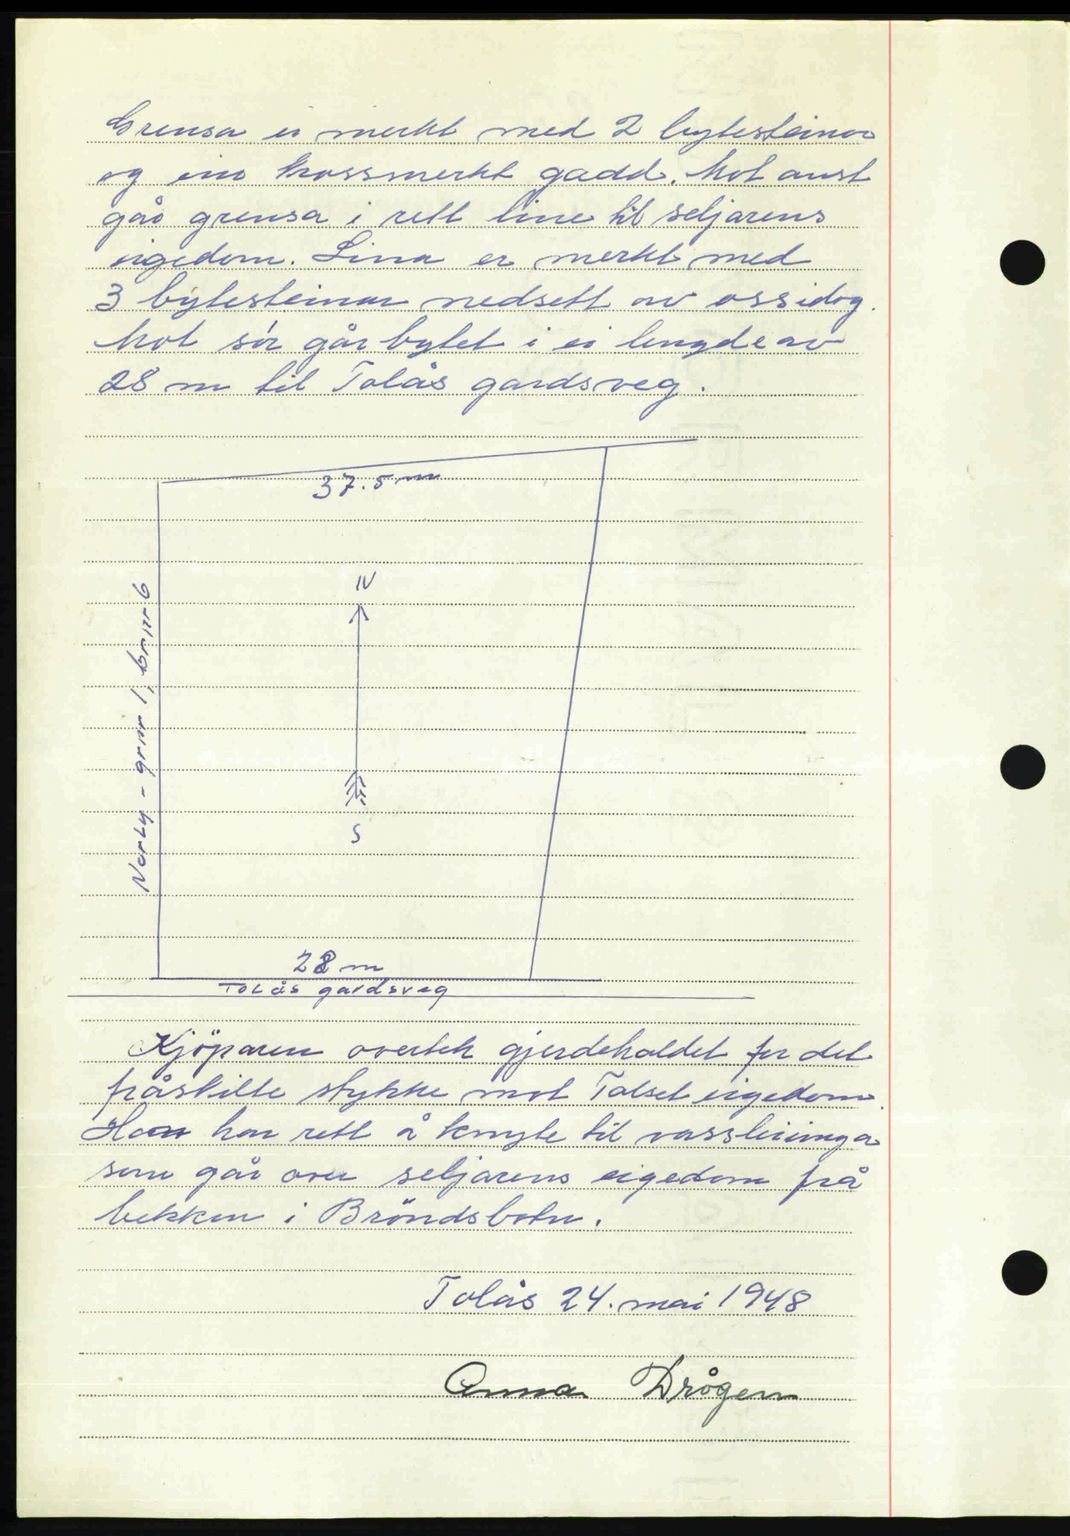 Grensa er merkt med 2 bytesteinar
og ein krossmerkt gadd. Mot aust
går grensa i rett line til seljarens
eigedom. Lina er merkt med
3 bytesteinar nedsett av oss idag.
Mot sør går bytet i ei lengde av
28 m til Tolås gardsveg.
37.5 m
N
Norby - grnr 1, brnr 6
S
28 m
Tolås gardsveg
Kjöparen overtek gjerdehaldet for det
fråskilte stykke mot Tolset eigedom.
Han har rett å knyte til vassleiinga
som går over seljarens eigedom frå
bekken i Bröndsbotn.
Tolås 24. mai 1948
Anna Drågen